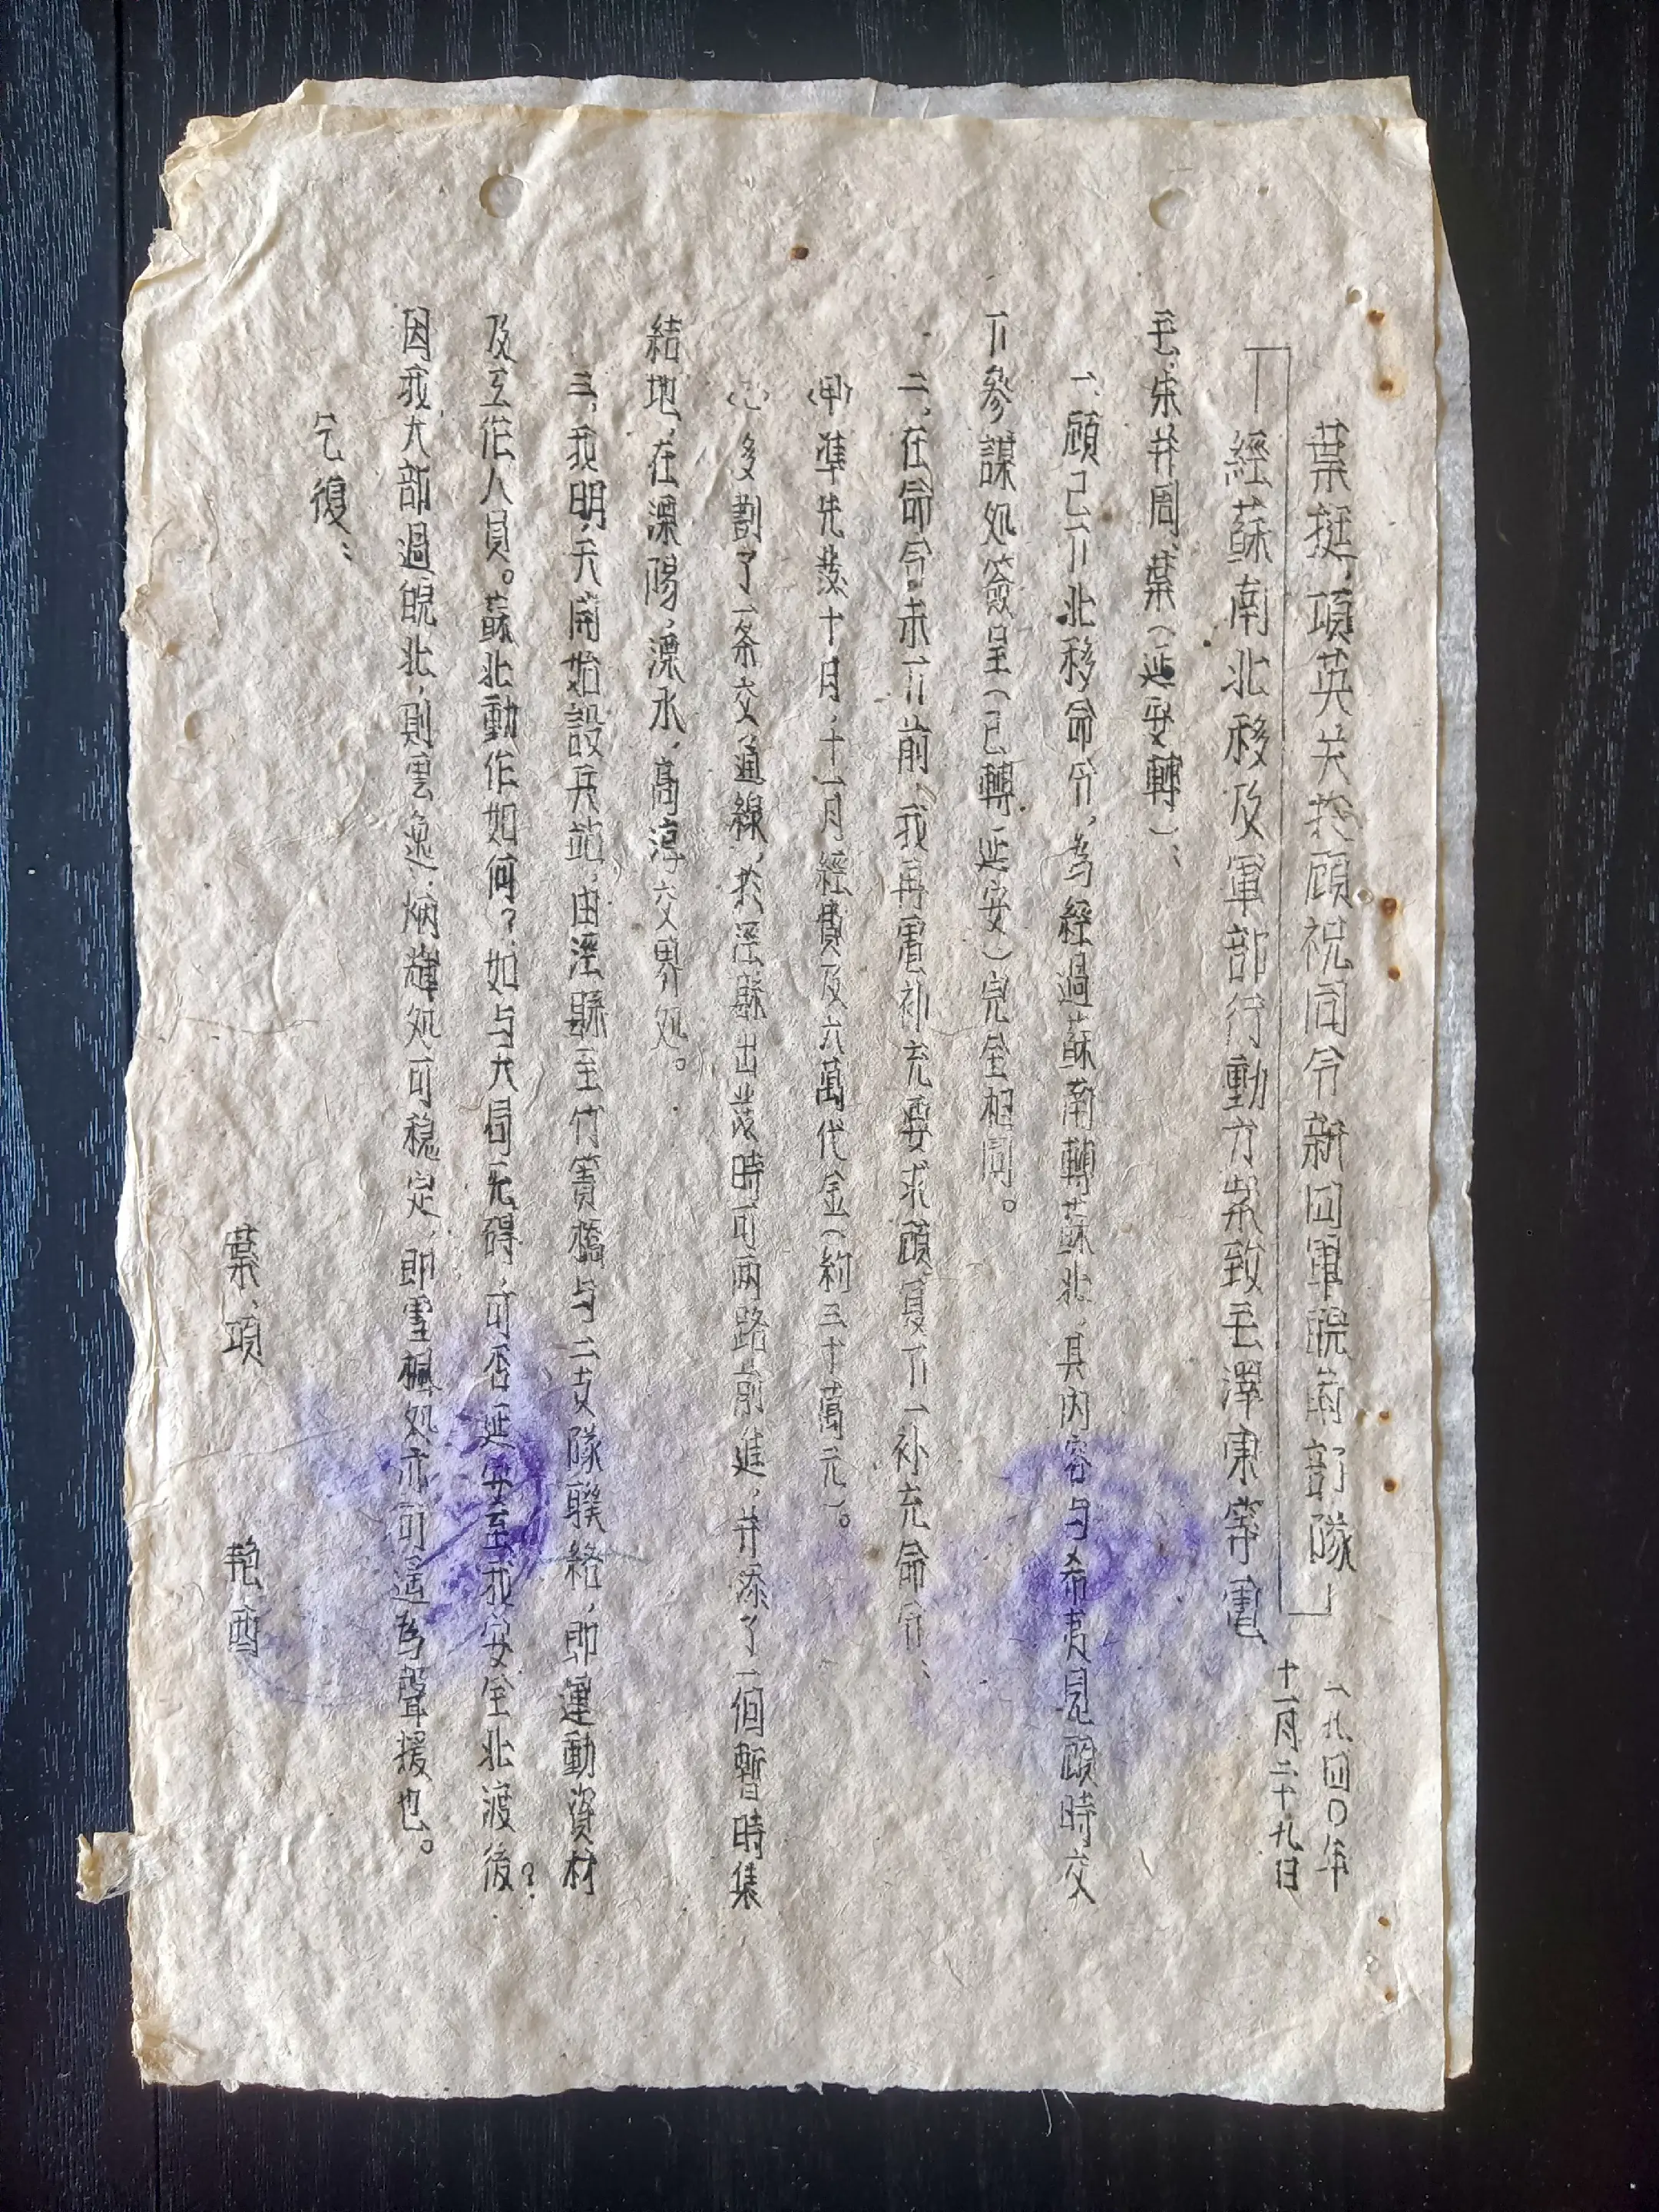 葉挺、項英关於顧祝同令新四軍皖南部隊
經蘇南北移及軍部行動方案致毛澤東等電
一九四〇年
十一月二十九日
毛、朱并周、葉(延安轉)：
一、顧已下北移命令，為經過蘇南轉蘇北，其内容与希夷見顧時交
下參謀処簽呈(已轉延安)完全相同。
二、在命令未下前，我再電补充要求，顧复下一补充命令：
(甲)準先發十月，十一月經費及六萬代金(約三十萬元)。
(乙)多劃了一条交通線，於涇縣出發時可兩路前進，并添了一個暫時集
結地，在溧陽，溧水，高淳交界処。
三、我明天開始設兵站，由涇縣至竹簀橋与二支隊聯絡，即運動資材
及工作人員。蘇北動作如何？如与大局无碍，可否延至我安全北渡後？
因我大部過皖北，則雲逸、炳輝処可稳定，即雪楓処亦可遥為聲援也。
乞復：
葉、項
艳酉